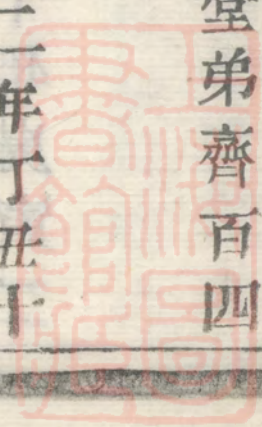 堂弟齊百四
二年丁丑十
上海圖
書館藏